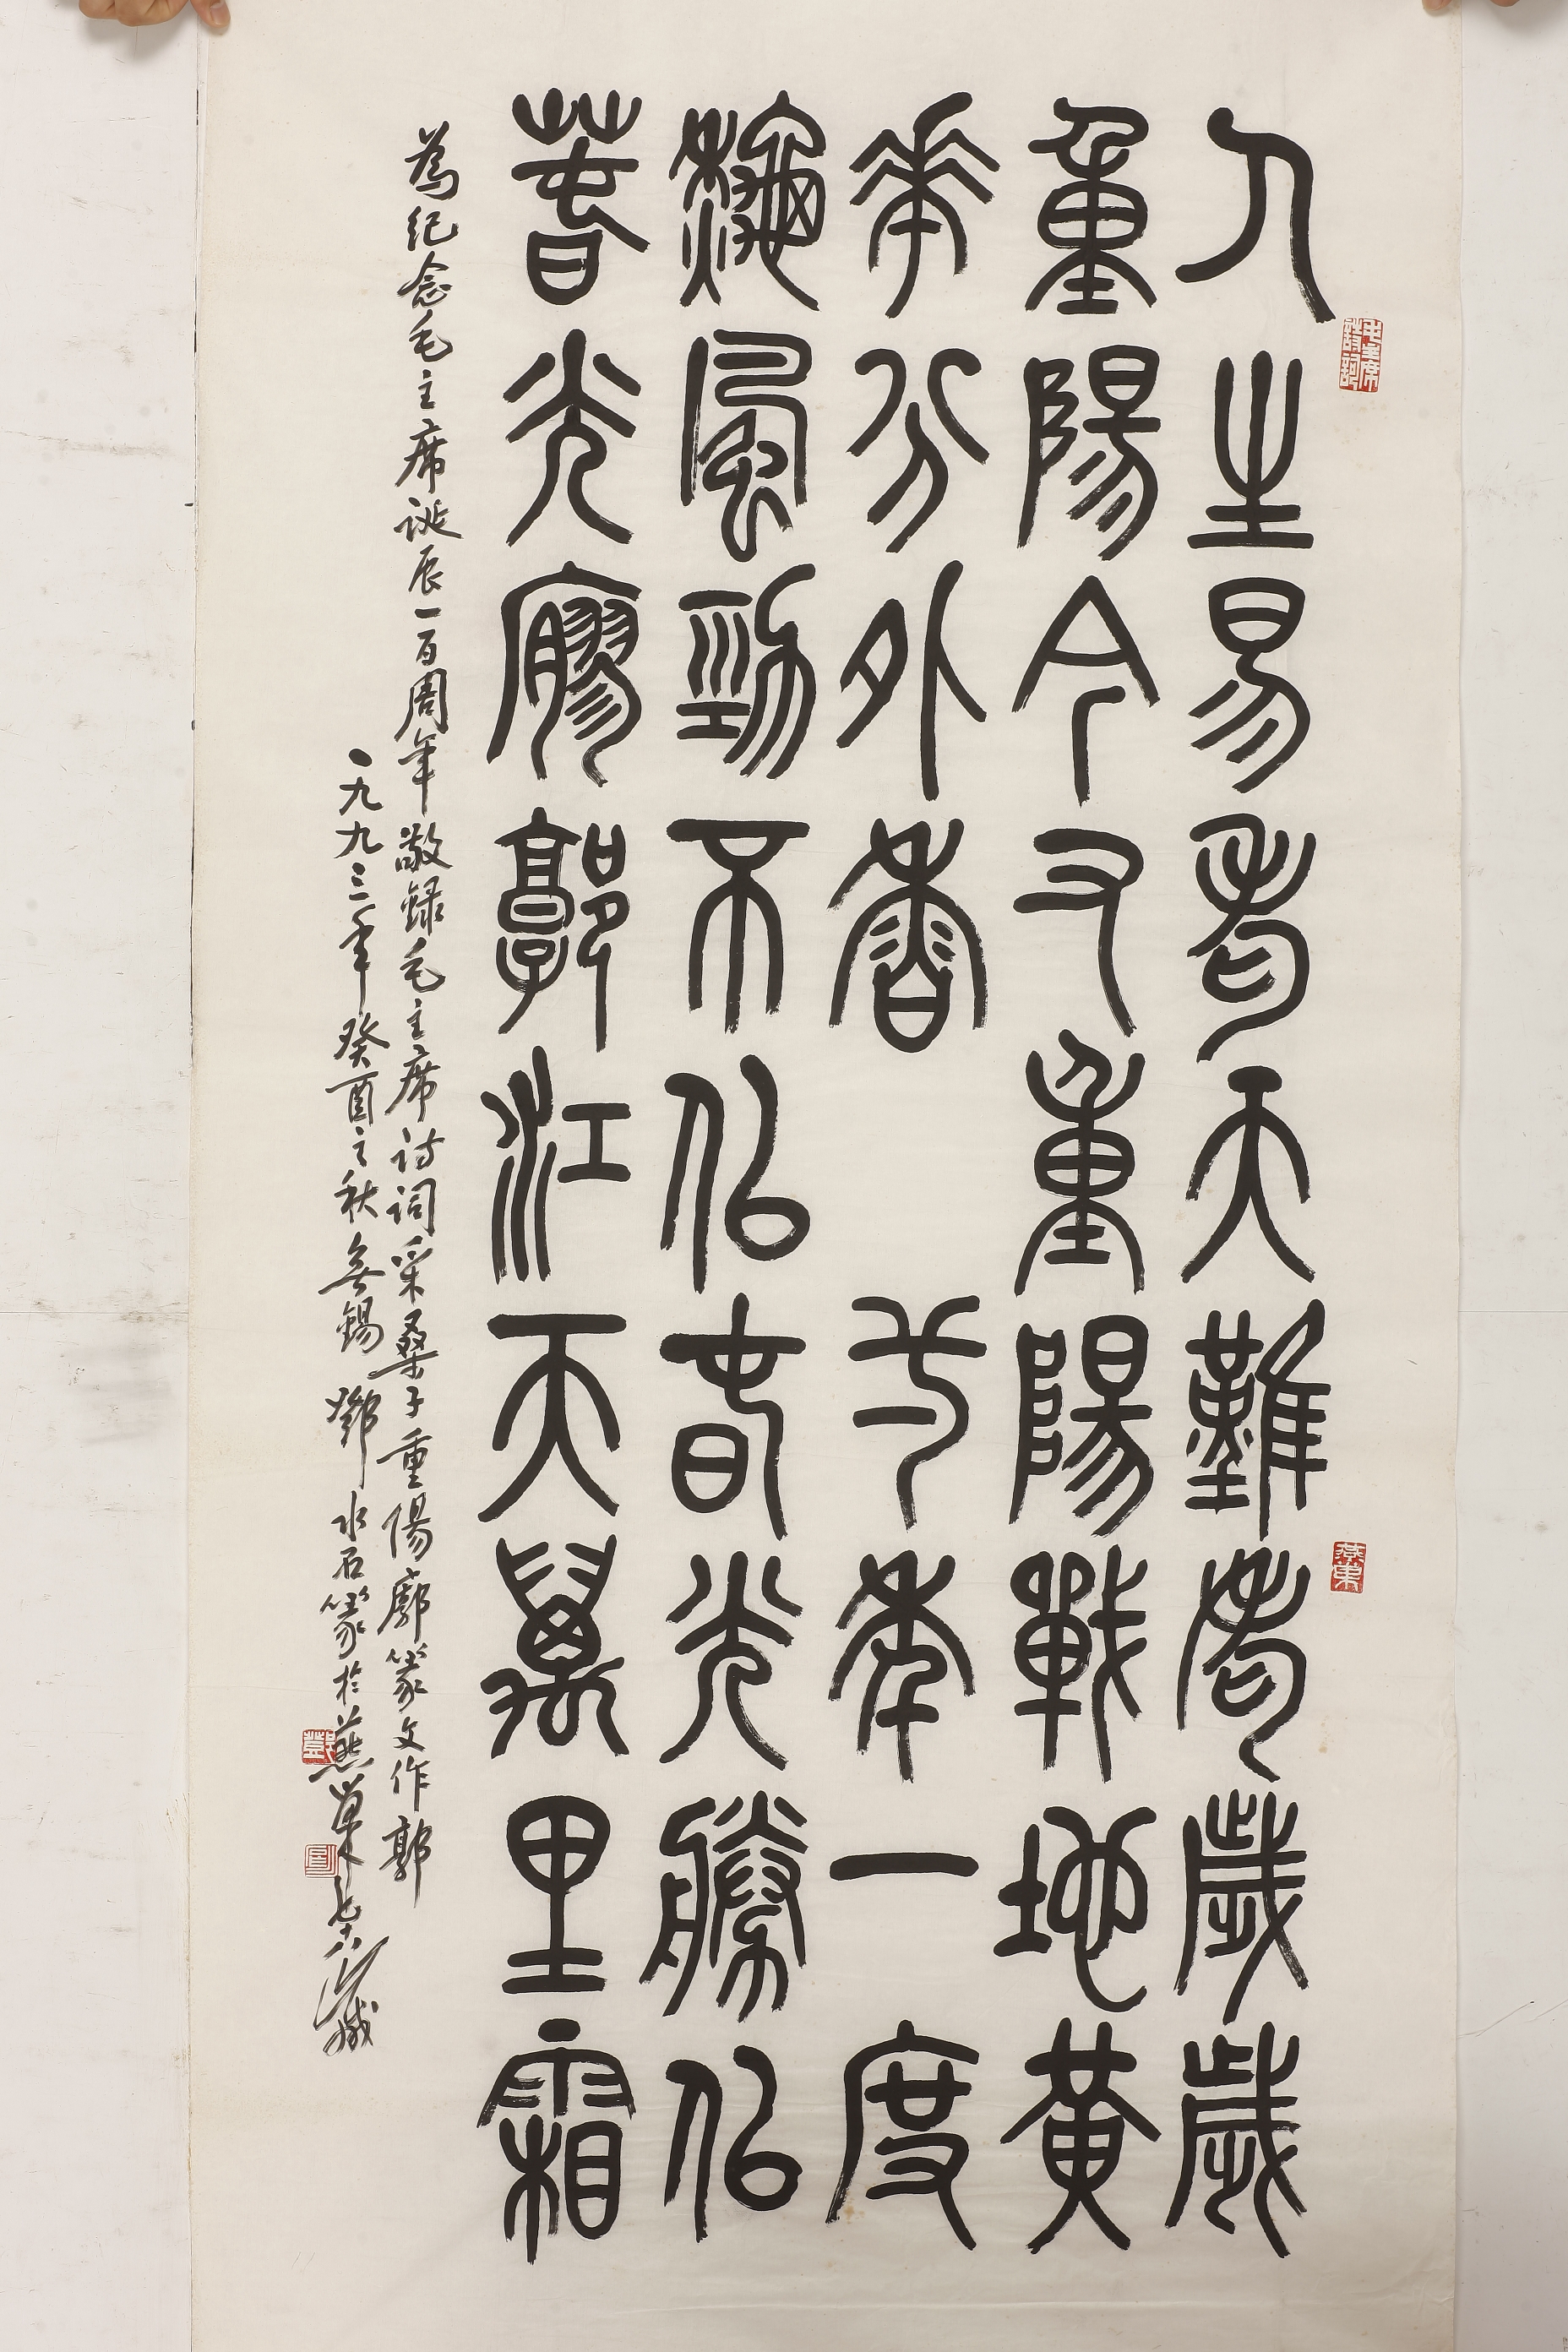 毛主席詩詞
人生易老天難老歲歲
燕巢
重陽今又重陽戰地黃
華分外香 弌年一度
秋風勁不似春光勝似
萅光廖郭江天萬里霜
為紀念毛主席诞辰一百周年敬録毛主席诗词采桑子重陽廓篆文作郭
一九九三年癸酉之秋無錫鄧水石篆於燕巢
鄧